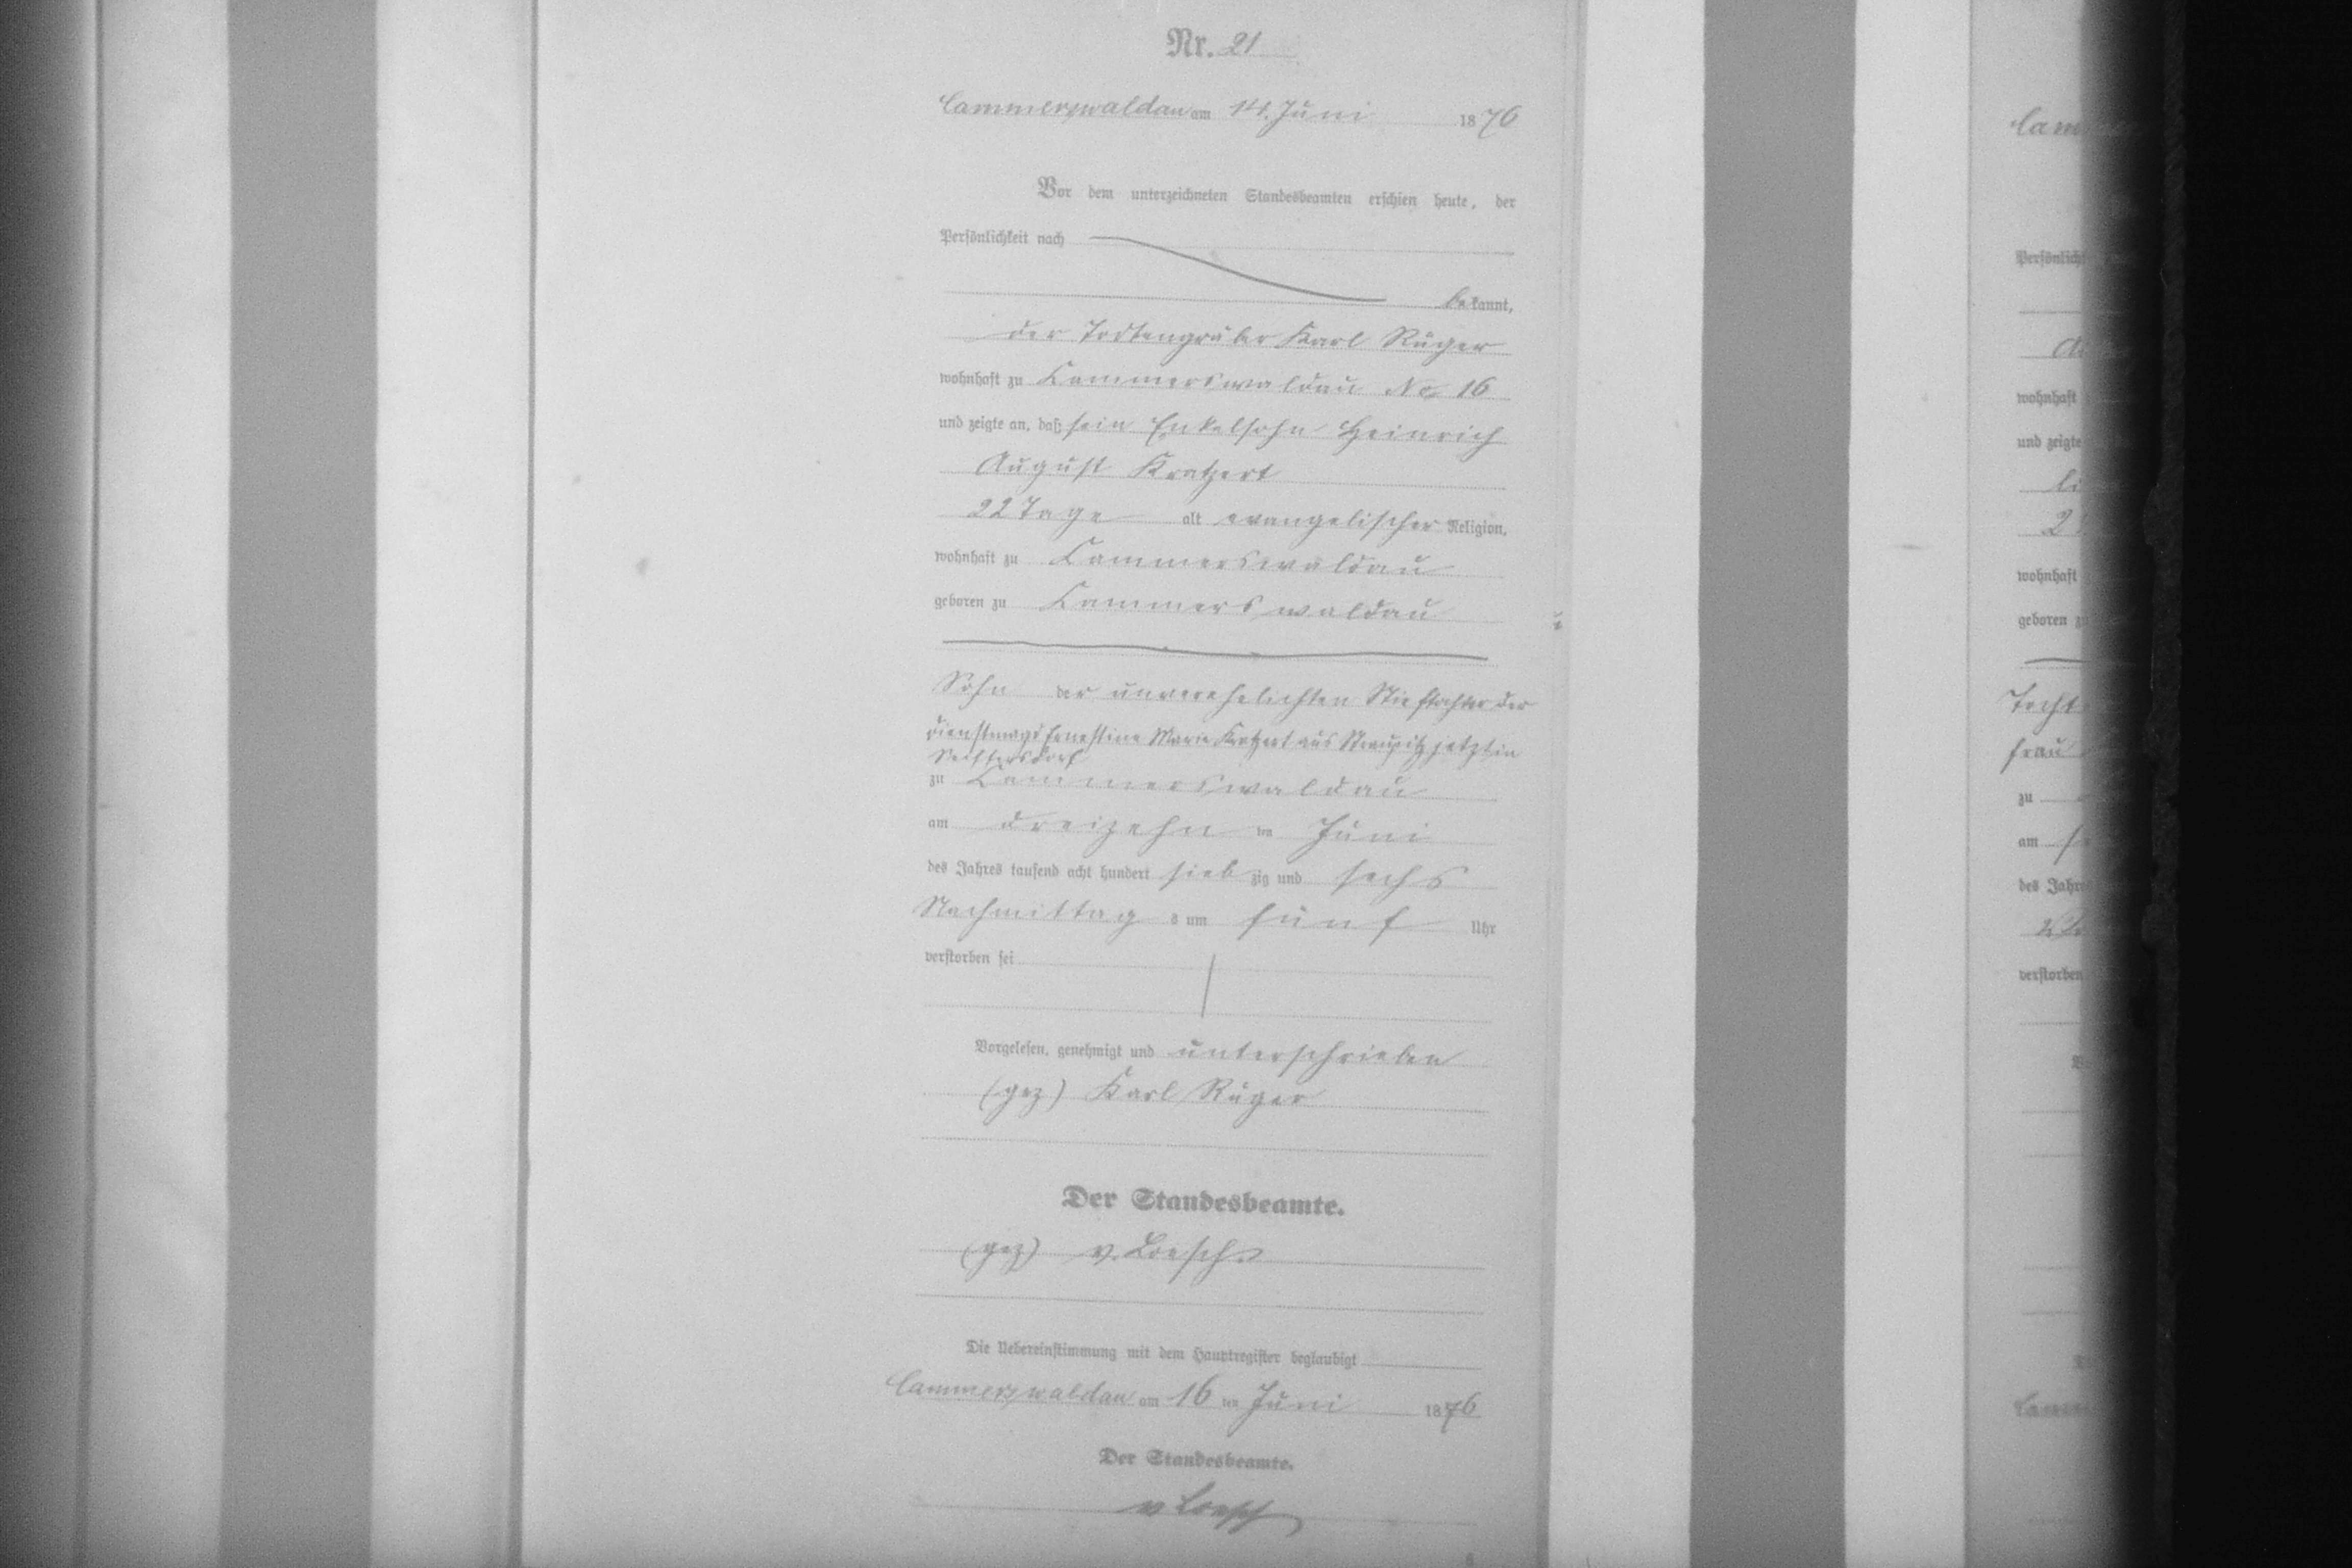 Nr. 21
Cammerswaldau am 14. Juni 1876
Vor dem unterzeichneten Standesbeamten erschien heute, der
Persönlichkeit nach
bekannt,
der Todtengräber Karl Rüger
wohnhaft zu Cammerswaldau No. 16
und zeigte an, daß sein Enkelsohn Heinrich
August Kratzert
22 Tage alt evangelischer Religion,
wohnhaft zu Cammerswaldau
geboren zu Cammerswaldau
Sohn der unverehelichten Stieftochter der
Dienstmagd Ernestine Marie Kratzert aus Straupitz jetzt in
Seiffersdorf
zu Cammerswaldau
am dreizehn ten Juni
des Jahres tausend acht hundert sieb zig und sechs
Nachmittag s um fünf Uhr
verstorben sei
Vorgelesen, genehmigt und unterschrieben
(gez) Karl Rüger
Der Standesbeamte.
(gez) v. Loesch
Die Uebereinstimmung mit dem Hauptregister beglaubigt
Cammerswaldau am 16 ten Juni 1876
Der Standesbeamte.
v Loesch
Persönlich
wohnhaft
und zeigte
wohnhaft
geboren zu
Tocht
frau
zu
am
des Jahres
verstorben